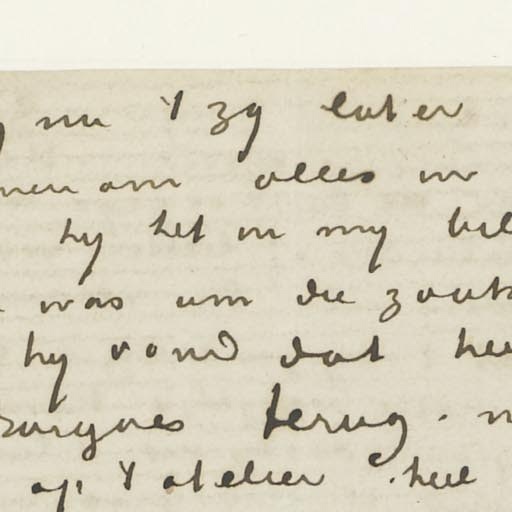 nu 't zy later
men om alles in
hy het in my bil
was um die zoutz
hy vond dat hee
terug. n
op 't atelier heel